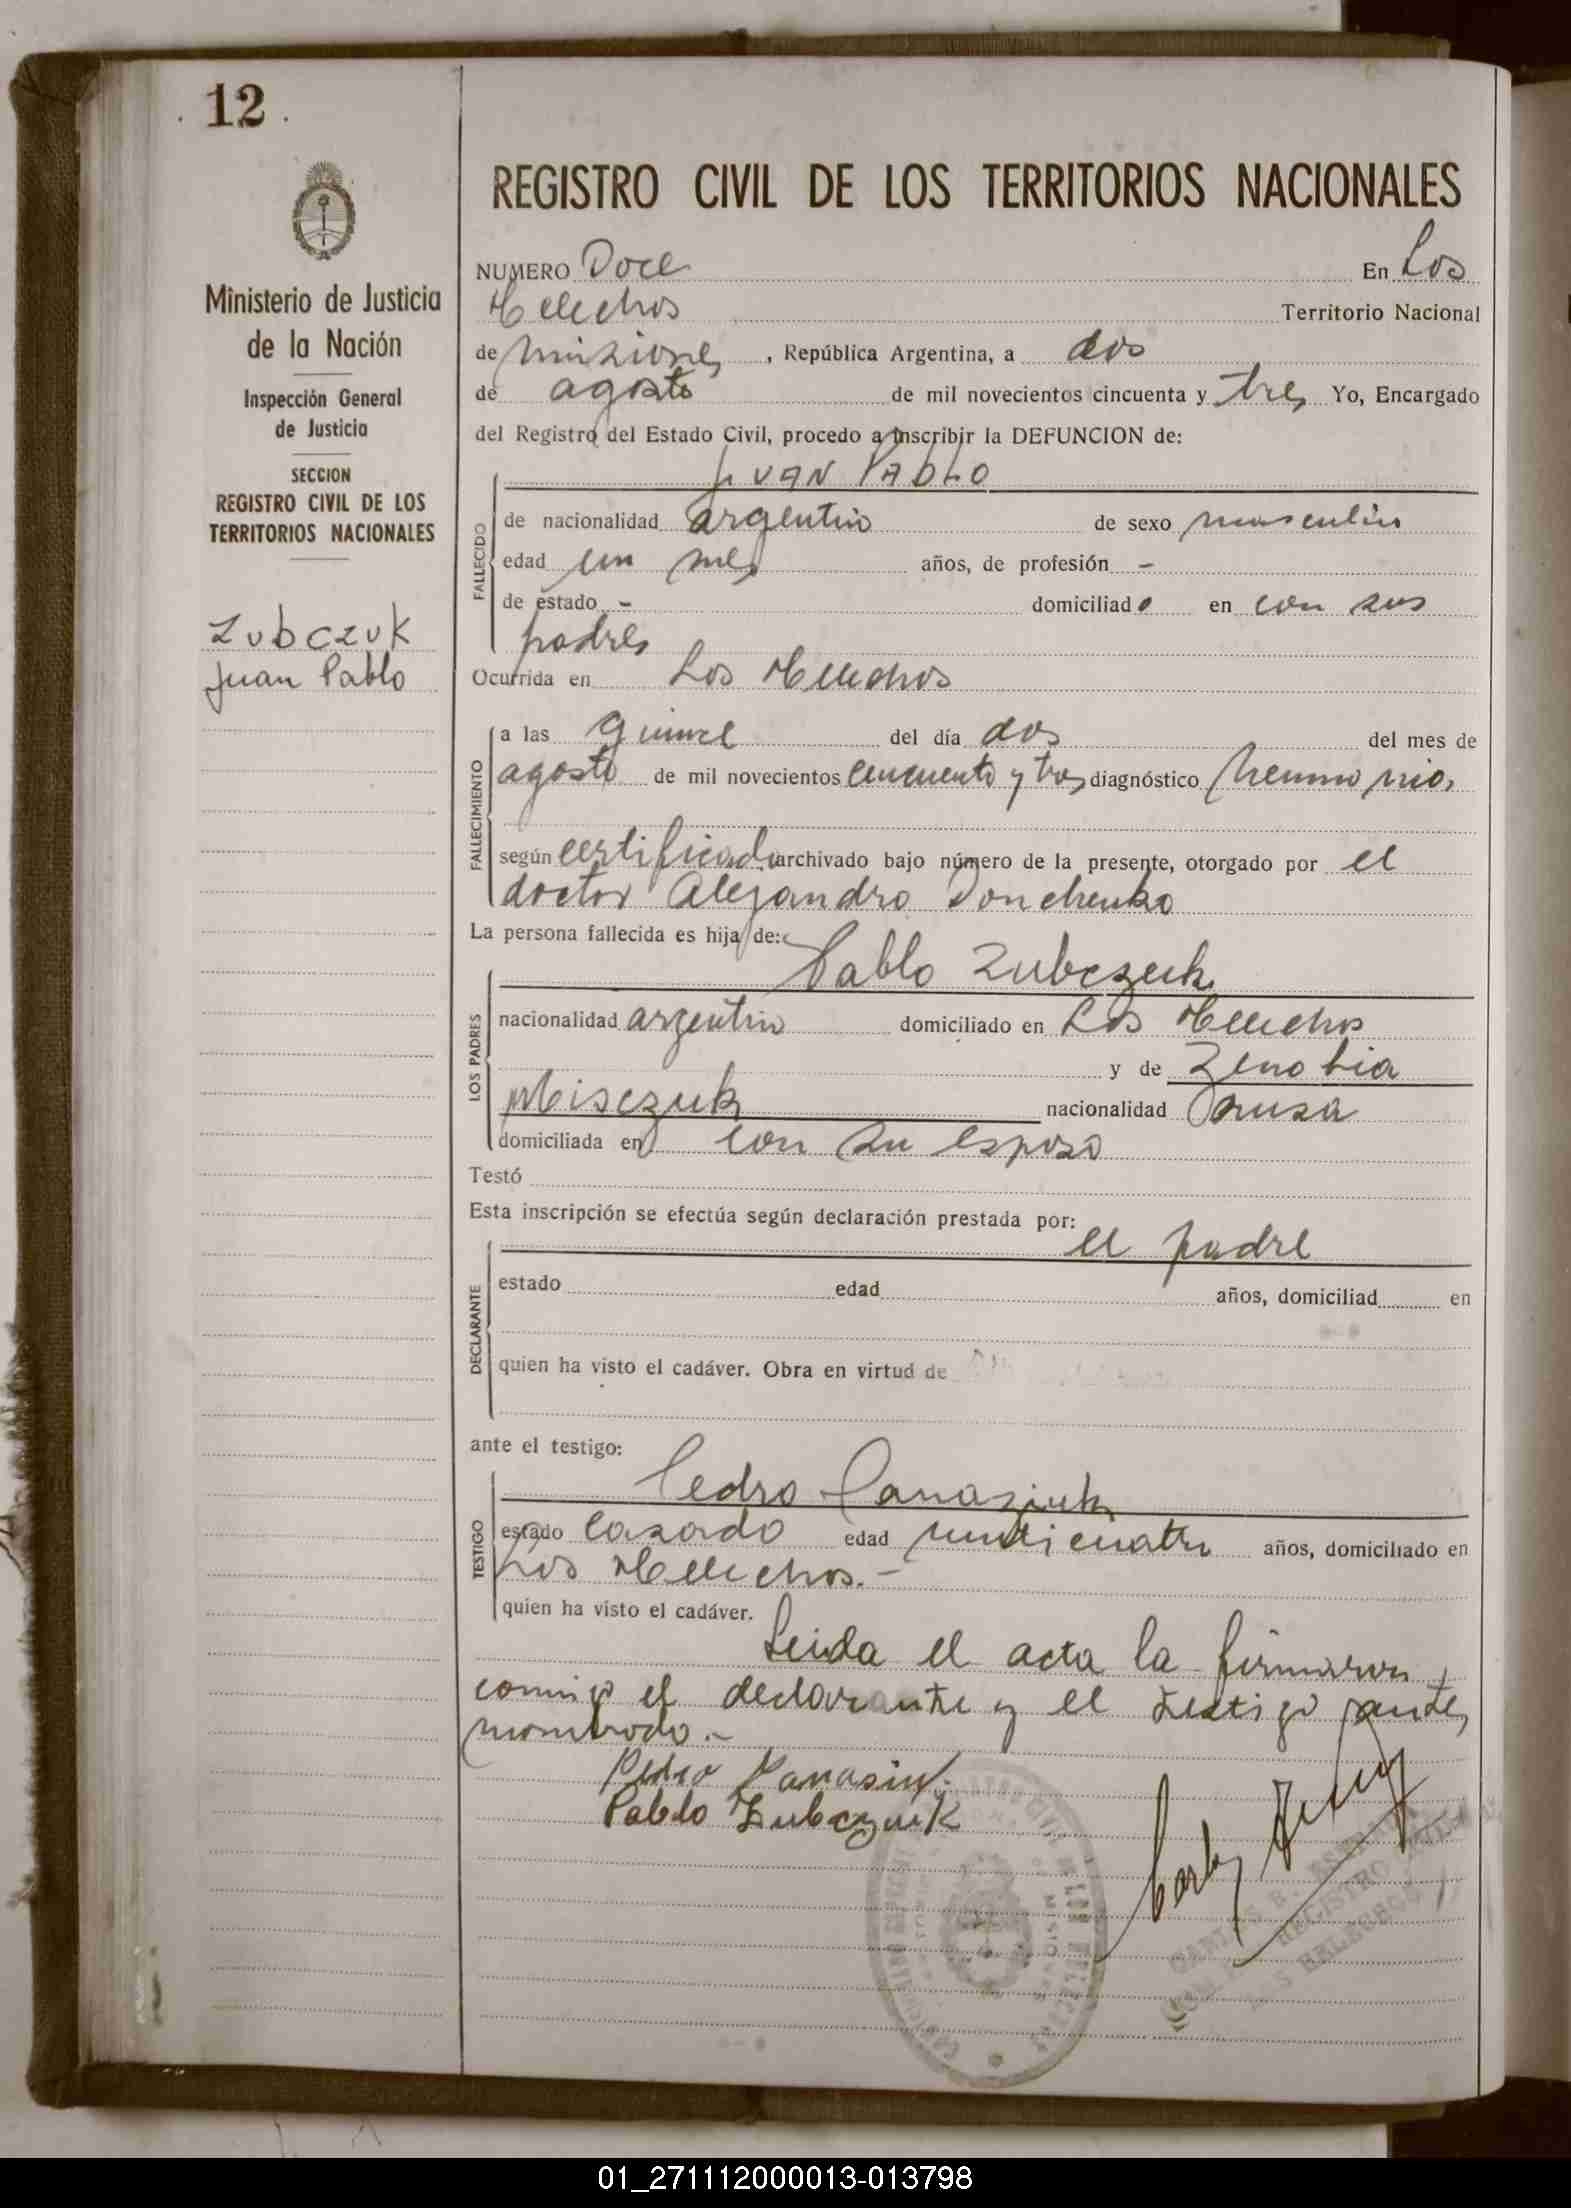 12
Ministerio de Justicia
de la Nación
Inspección General
de Justicia
SECCION
REGISTRO CIVIL DE LOS
TERRITORIOS NACIONALES
Zubczuk
Juan Pablo
REGISTRO CIVIL DE LOS TERRITORIOS NACIONALES
NUMERO Doce En Los
Helechos Territorio Nacional
de Misiones, República Argentina, a dos
de agosto de mil novecientos cincuenta y tres Yo, Encargado
del Registro del Estado Civil, procedo a inscribir la DEFUNCION de:
JUAN PABLO
FALLECIDO
de nacionalidad argentino de sexo masculino
edad un mes años, de profesión -
de estado - domiciliado en con sus
padres
Ocurrida en Los Helechos
FALLECIMIENTO
a las quince del día dos del mes de
agosto de mil novecientos cincuenta y tres diagnóstico
según certificado archivado bajo número de la presente, otorgado por el
doctor Alejandro Donchenko
La persona fallecida es hija de:
Pablo Zubczuk
LOS PADRES
nacionalidad argentino domiciliado en Los Helechos
y de Zenobia
Misczuk nacionalidad rusa
domiciliada en con su esposo
Testó
Esta inscripción se efectúa según declaración prestada por:
el padre
DECLARANTE
estado edad años, domiciliad en
quien ha visto el cadáver. Obra en virtud de
ante el testigo:
Pedro Panasiuk
TESTIGO
estado casado edad veinticuatro años, domiciliado en
Los Helechos.-
quien ha visto el cadáver.
Leida el acta la firmaron
conmigo el declarante y el testigo antes
nombrado.-
Pedro Panasiuk
Pablo Zubczuk
01_271112000013-013798